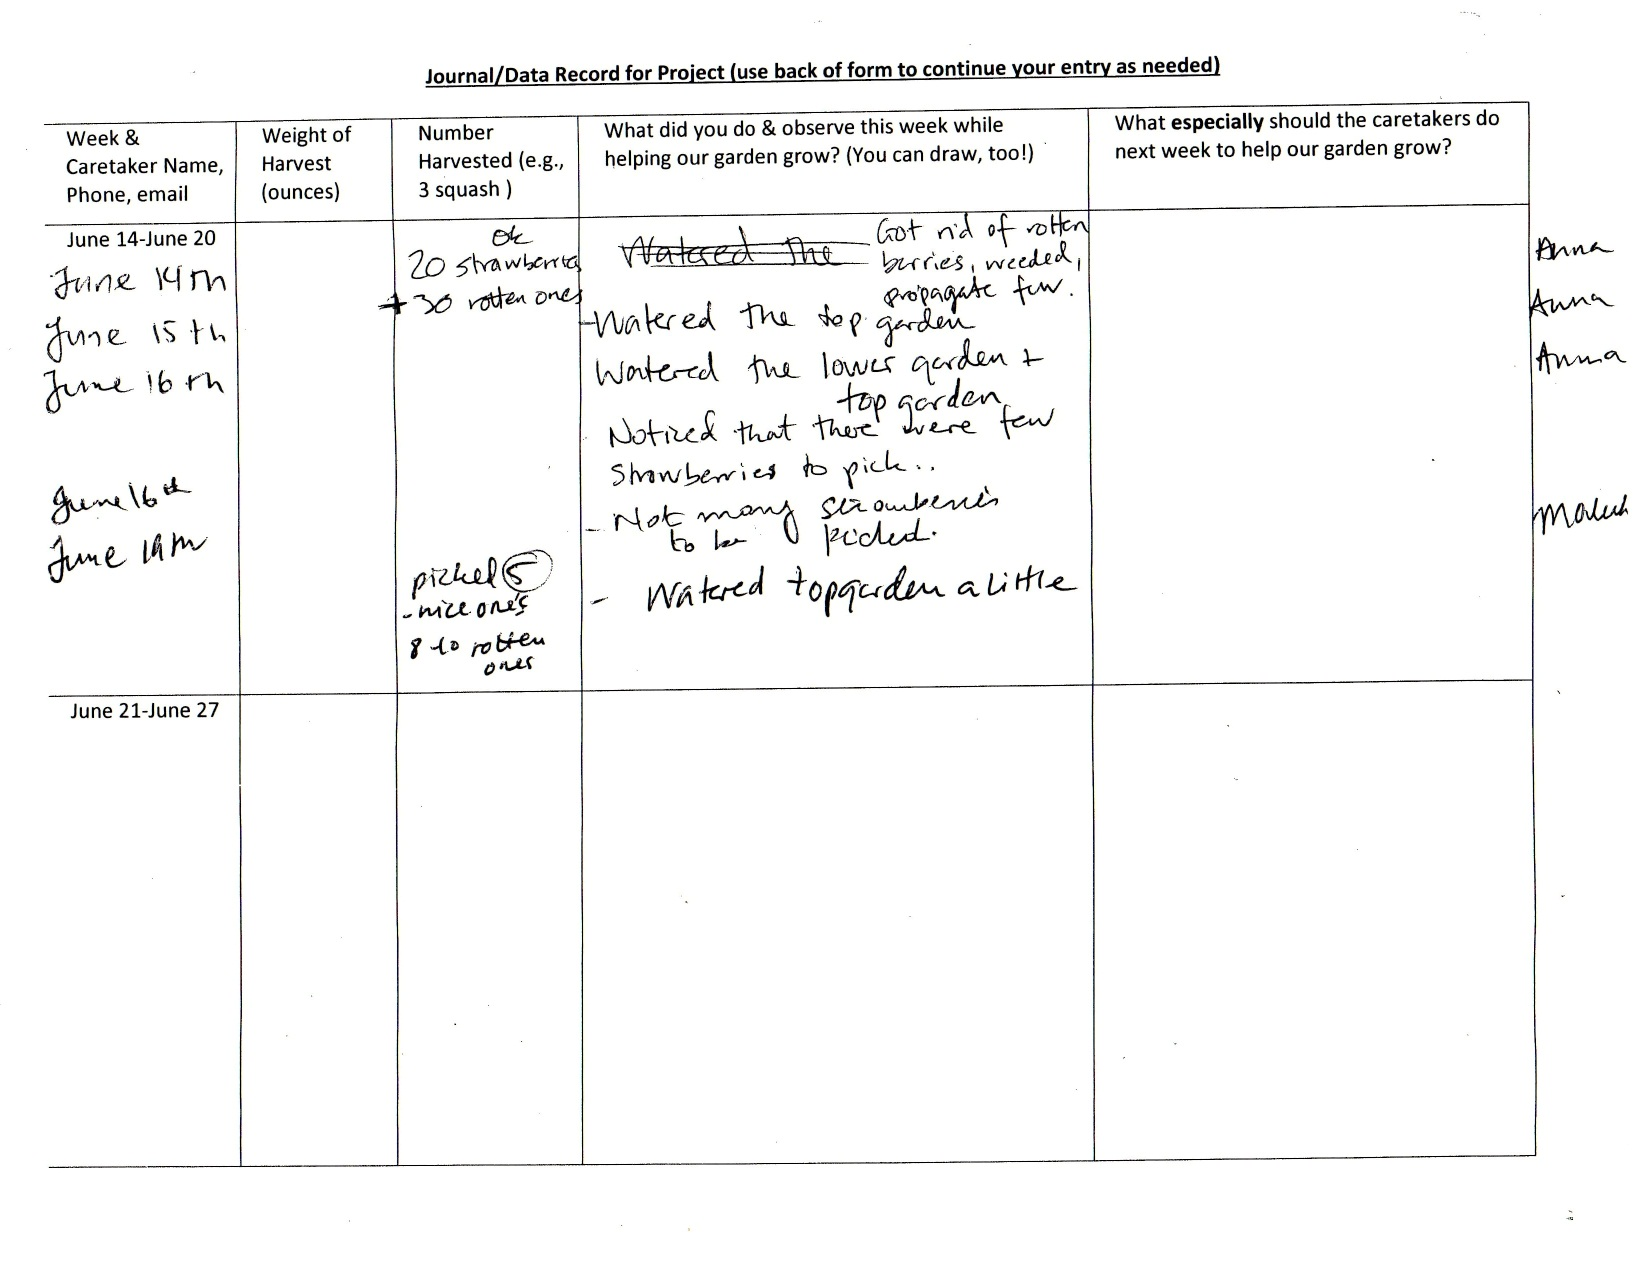 Journal/Data Record for Project (use back of form to continue your entry as needed)
Week &
Caretaker Name,
Phone, email
Weight of
Harvest
(ounces)
Number
Harvested (e.g.,
3 squash )
What did you do & observe this week while
helping our garden grow? (You can draw, too!)
What especially should the caretakers do
next week to help our garden grow?
June 14-June 20
June 14th
June 15th
June 16th
June 16th
June 19th
ok
20 strawberries
+ 30 rotten ones
picked 5
- nice one's
8 to rotten
ones
Watered the
Got rid of rotten
berries, weeded,
propagate few.
-Watered the top garden
Watered the lower garden +
top garden
Noticed that there were few
strawberries to pick..
- Not many strawberries
to be picked.
- Watered top garden a little
Anna
Anna
Anna
June 21-June 27